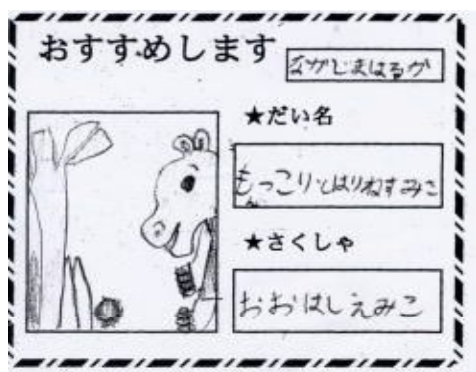 おすすめします
ながじまはるか
★だい名
もっこりとはりねずみこ
ん
★さくしゃ
おおはしえみこ